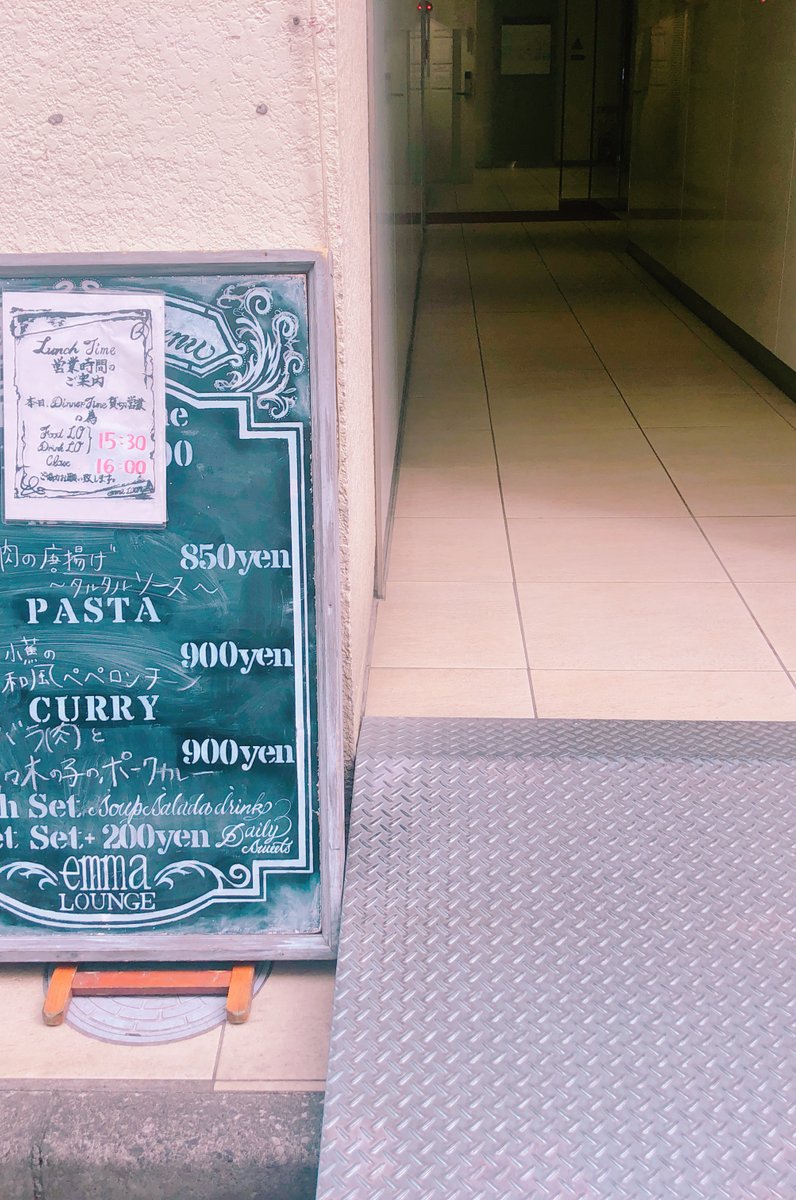 Menu
Lunch Time
営業時間の
ご案内
本日、Dinner Time 貸切営業
の為
Food L.O
Drink L.O
15:30
Close
16:00
ご協力お願い致します。
emma LOUNGE
肉の唐揚げ
850yen
~タルタルソース~
PASTA
900yen
和風ペペロンチーノ
CURRY
バラ(肉)と
900yen
木の子のポークカレー
h Set soup salada drink
et Set+200yen Daily sweets
emma
LOUNGE